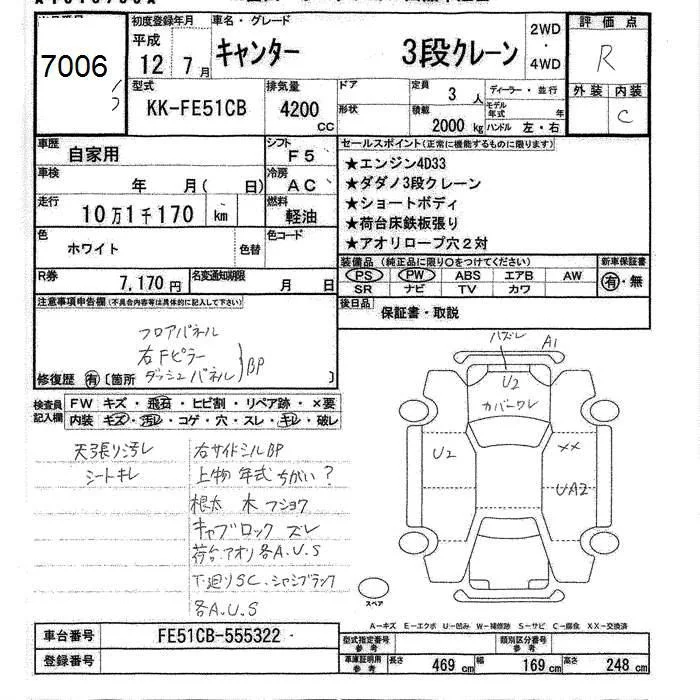 7006
初度登録年月
平成
12 7月
車名・グレード
キャンター 3段クレーン
2WD
・
4WD
評価点
R
外装 内装
C
型式
KK-FE51CB
排気量
4200 cc
ドア
形状
定員
3 人
積載
2000 kg
ディーラー・並行
モデル年式 年
ハンドル 左・右
車歴
自家用
シフト
F5
車検
年 月( 日)
冷房
AC
走行
10万1千170 km
燃料
軽油
色
ホワイト
色替
色コード
R券
7,170円
名変通知期限
月 日
セールスポイント(正常に機能するものに限ります)
★エンジン4D33
★ダダノ3段クレーン
★ショートボディ
★荷台床鉄板張り
★アオリロープ穴2対
装備品(純正品に限り○をつけてください)
新車保証書
PS PW ABS エアB AW
SR ナビ TV カワ
有・無
後日品
保証書・取説
注意事項申告欄(不具合内容等は具体的に記入して下さい)
フロアパネル
右Fピラー
修復歴 有 〔箇所 ダッシュパネル 〕
BP
検査員記入欄
FW キズ・飛石・ヒビ割・リペア跡・×要
内装 キズ・汚レ・コゲ・穴・スレ・キレ・破レ
天張り汚レ
シートキレ
右サイドシルBP
上物 年式 ちがい?
根太 木 フショク
キャブロック ズレ
荷台.アオリ各A.U.S
下廻りSC.シャシブラック
各A.U.S
ハズレ
A1
U2
カバーワレ
U2
××
UA2
スペア
A-キズ E-エクボ U-凹み W-補修跡 S-サビ C-腐食 XX-交換済
車台番号
FE51CB-555322
登録番号
型式指定番号
参考
類別区分番号
参考
車庫証明用
参考
長さ 469 cm 幅 169 cm 高さ 248 cm